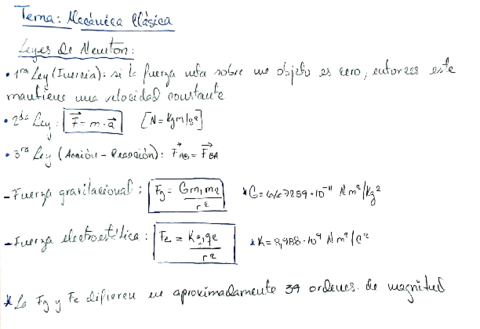 Tema: Mecánica Clásica
Leyes de Newton:
• 1ra Ley (Inercia): si la fuerza neta sobre un objeto es cero, entonces este
mantiene una velocidad constante
• 2da Ley: F⃗ = m · a⃗ [N = Kg m/s²]
• 3ra Ley (Acción - Reacción): F⃗AB = F⃗BA
- Fuerza gravitacional: Fg = G m₁ m₂ / r² * G = 6,67259 · 10⁻¹¹ N m²/Kg²
- Fuerza electrostática: Fe = K q₁ q₂ / r² * K = 8,988 · 10⁹ N m²/C²
* La Fg y Fe difieren en aproximadamente 39 ordenes de magnitud